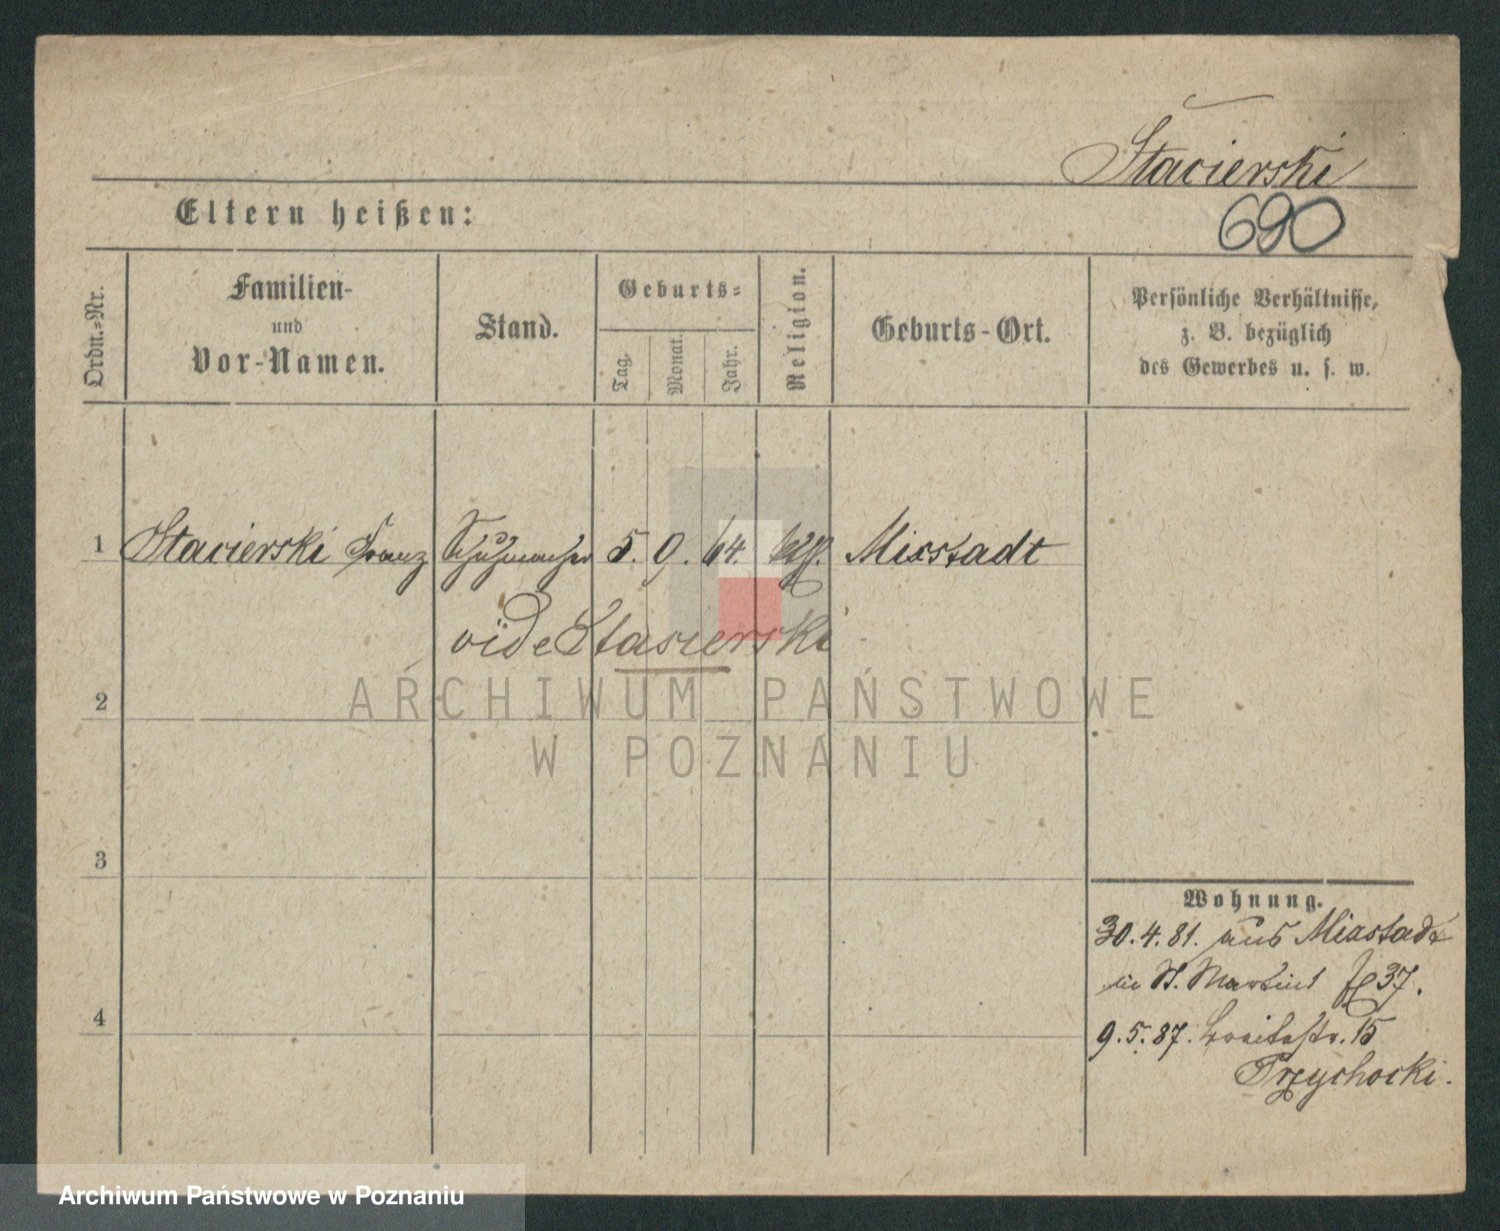 Stacierski
Eltern heißen:
690
Ordn.=Nr.
Familien-
und
Vor-Namen.
Stand.
Geburts=
Tag.
Monat.
Jahr.
Religion.
Geburts-Ort.
Persönliche Verhältnisse,
z. B. bezüglich
des Gewerbes u. s. w.
1 Stacierski Franz Schuhmacher 5. 9. 64. Mixstadt
vide Stasierski
2
ARCHIWUM PAŃSTWOWE
W POZNANIU
3
Wohnung.
30.4.81. aus Mixstadt
St. Martin 37.
4
9.5.87. 15
Trzychocki.
Archiwum Państwowe w Poznaniu